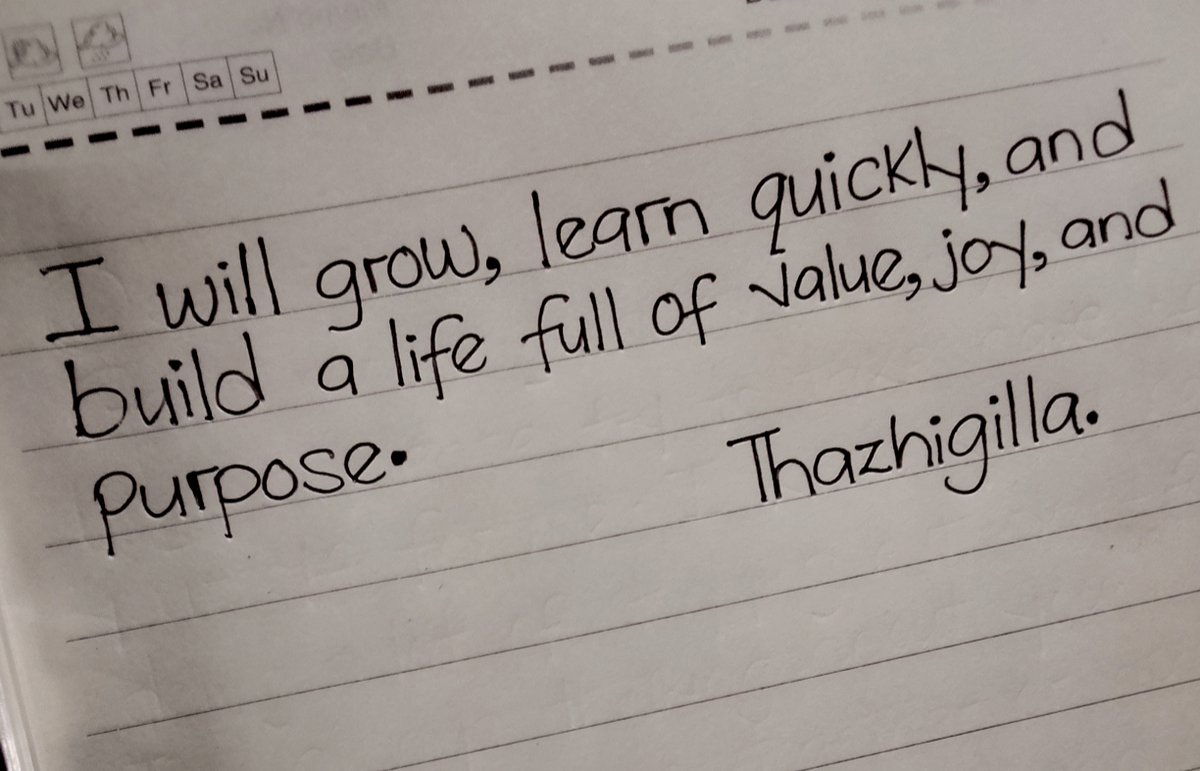 Tu We Th Fr Sa Su
I will grow, learn quickly, and
build a life full of value, joy, and
purpose.
Thazhigilla.